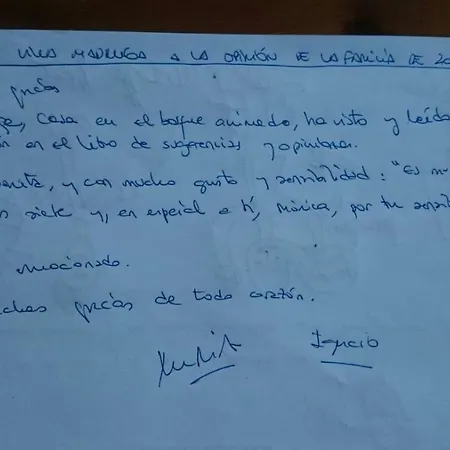 A LA OPINIÓN DE LA FAMILIA DE 20
gracias
, Casa en el bosque animado, ha visto y leído
en el libro de sugerencias y opiniones.
, y con mucho gusto y sensibilidad: "Es
siete y, en especial a ti, Mónica, por tu
emocionado.
gracias de todo corazón.
Ignacio